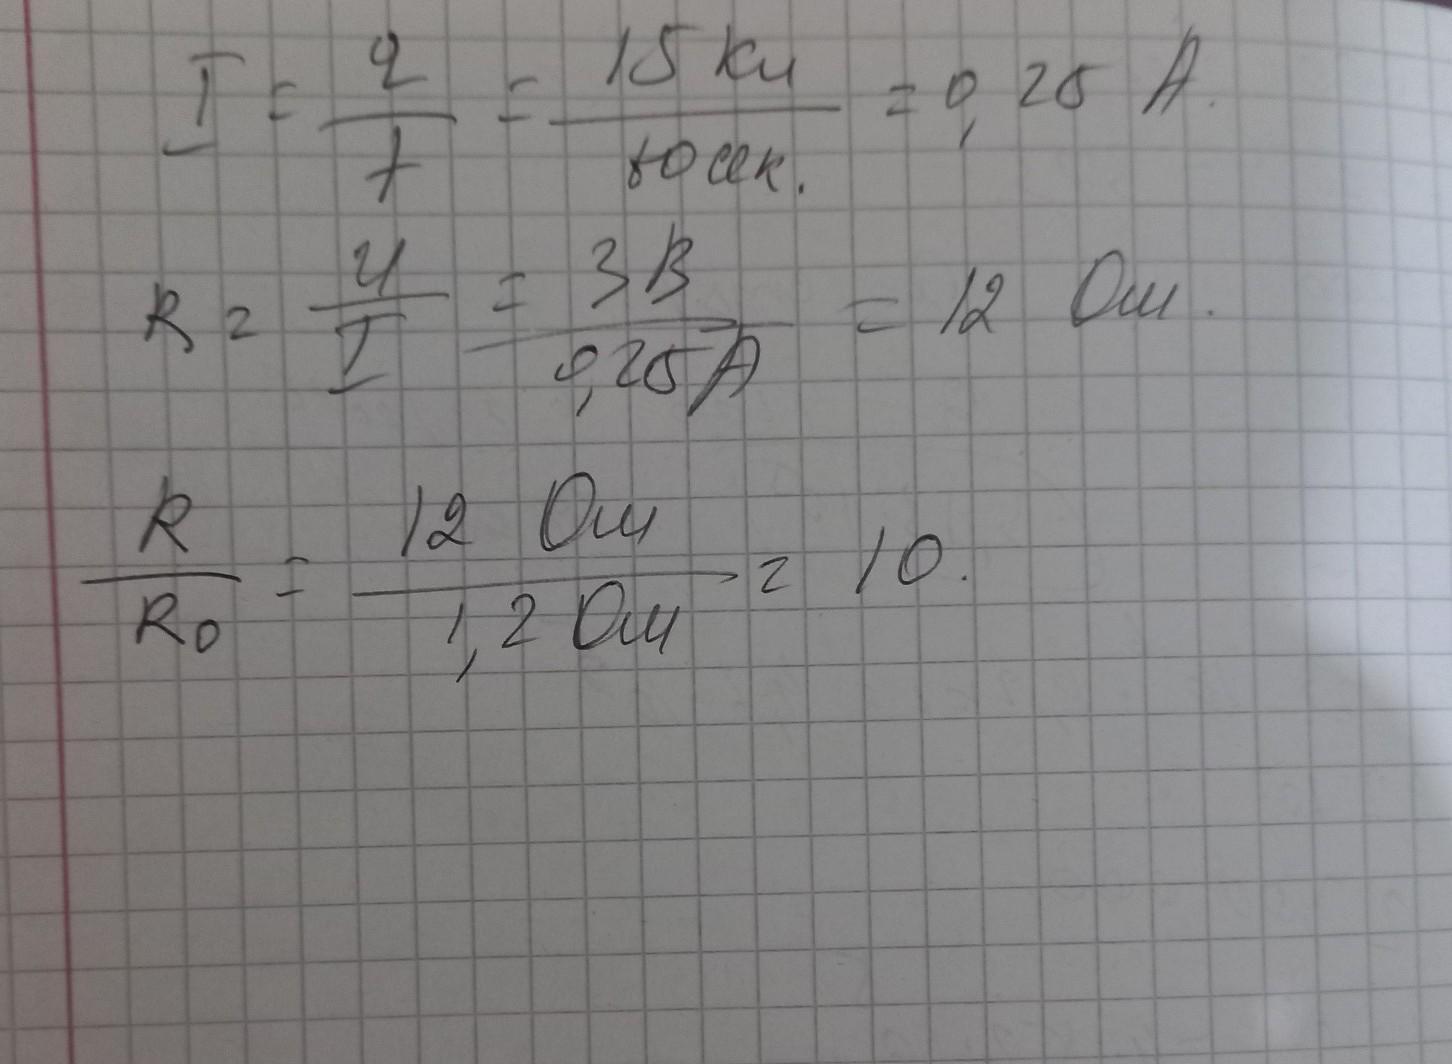 I = q/t = 15 Кл / 60 сек. = 0,25 А.
R = U/I = 3 В / 0,25 А = 12 Ом.
R/R0 = 12 Ом / 1,2 Ом = 10.